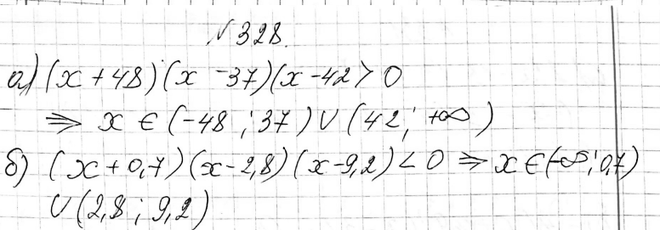 №328.
а) (x + 48)(x - 37)(x - 42 > 0
⇒ x ∈ (-48 ; 37) ∪ (42 ; +∞)
б) (x + 0,7)(x - 2,8)(x - 9,2) < 0 ⇒ x ∈ (-∞ ; 0,7)
∪ (2,8 ; 9,2)